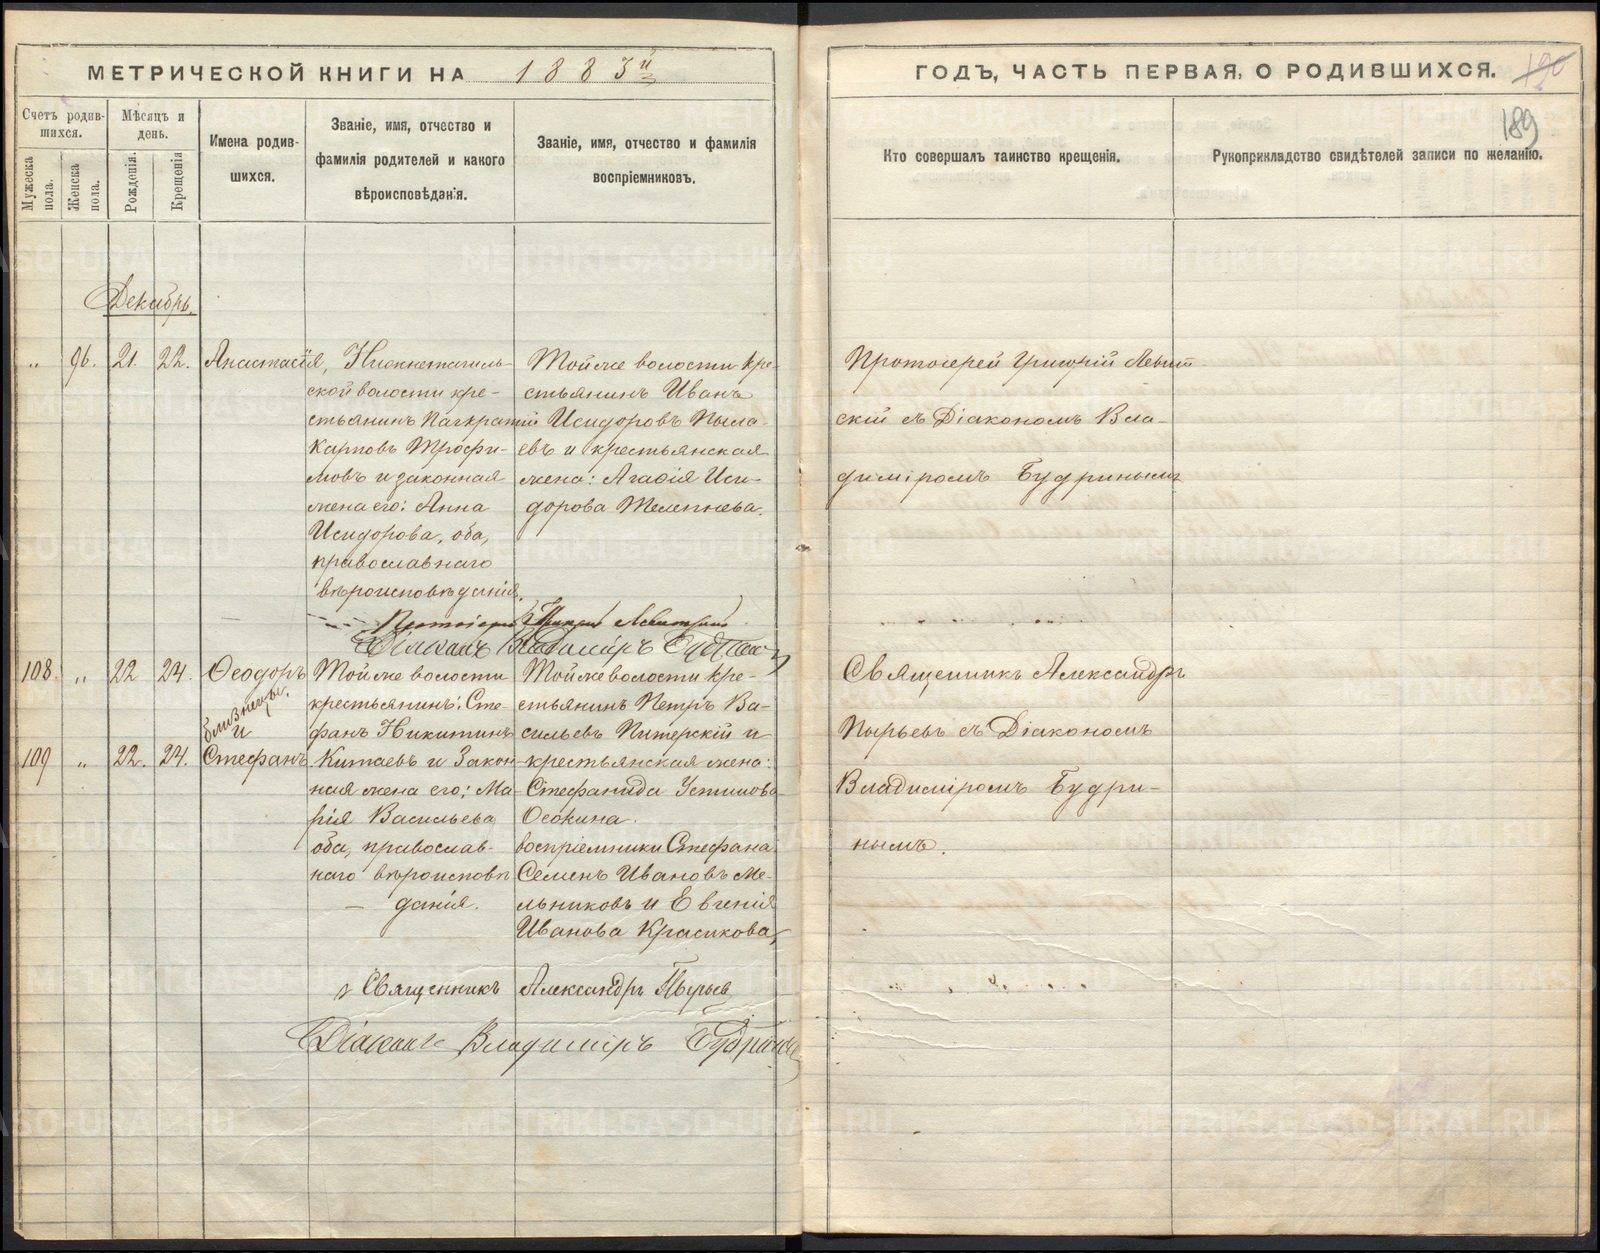 МЕТРИЧЕСКОЙ КНИГИ НА 1883й
ГОДЪ, ЧАСТЬ ПЕРВАЯ, О РОДИВШИХСЯ. 190
189
Счетъ родив-
шихся.
Мужеска
пола.
Женска
пола.
Мѣсяцъ и
день.
Рожденія.
Крещенія
Имена родив-
шихся.
Званіе, имя, отчество и
фамилія родителей и какого
вѣроисповѣданія.
Званіе, имя, отчество и фамилія
воспріемниковъ.
Кто совершалъ таинство крещенія.
Рукоприкладство свидѣтелей записи по желанію.
Декабрь.
„ 96. 21. 22. Анастасія,
Нижнетагиль-
ской волости кре-
стьянинъ Панкратій
Карповъ Трофи-
мовъ и законная
жена его: Анна
Исидорова, оба,
православнаго
вѣроисповѣданія.
Тойже волости кре-
стьянинъ Иванъ
Исидоровъ Пыла-
евъ и крестьянская
жена: Агафія Иси-
дорова Телепнева.
Протоіерей Григорій Левит-
скій съ Діакономъ Вла-
диміромъ Будринымъ
Протоіерей Григорій Левитскій
Діаконъ Владиміръ Будринъ
108. „ 22 24. Ѳеодоръ
близнецы.
и
109 „ 22. 24. Стефанъ
Тойже волости
крестьянинъ: Сте-
фанъ Никитинъ
Китаевъ и Закон-
ная жена его: Ма-
рія Васильева
оба, православ-
наго вѣроисповѣ-
данія.
Тойже волости кре-
стьянинъ Петръ Ва-
сильевъ Питерскій и
крестьянская жена:
Стефанида Устинова
Осокина.
воспріемники Стефана
Семенъ Ивановъ Ме-
льниковъ и Евгенія
Иванова Красикова,
Священникъ Александръ
Пырьевъ съ Діакономъ
Владиміромъ Будри-
нымъ.
Священникъ Александръ Пырьев
Діаконъ Владиміръ Будринъ
METRIKI.GASO-URAL.RU